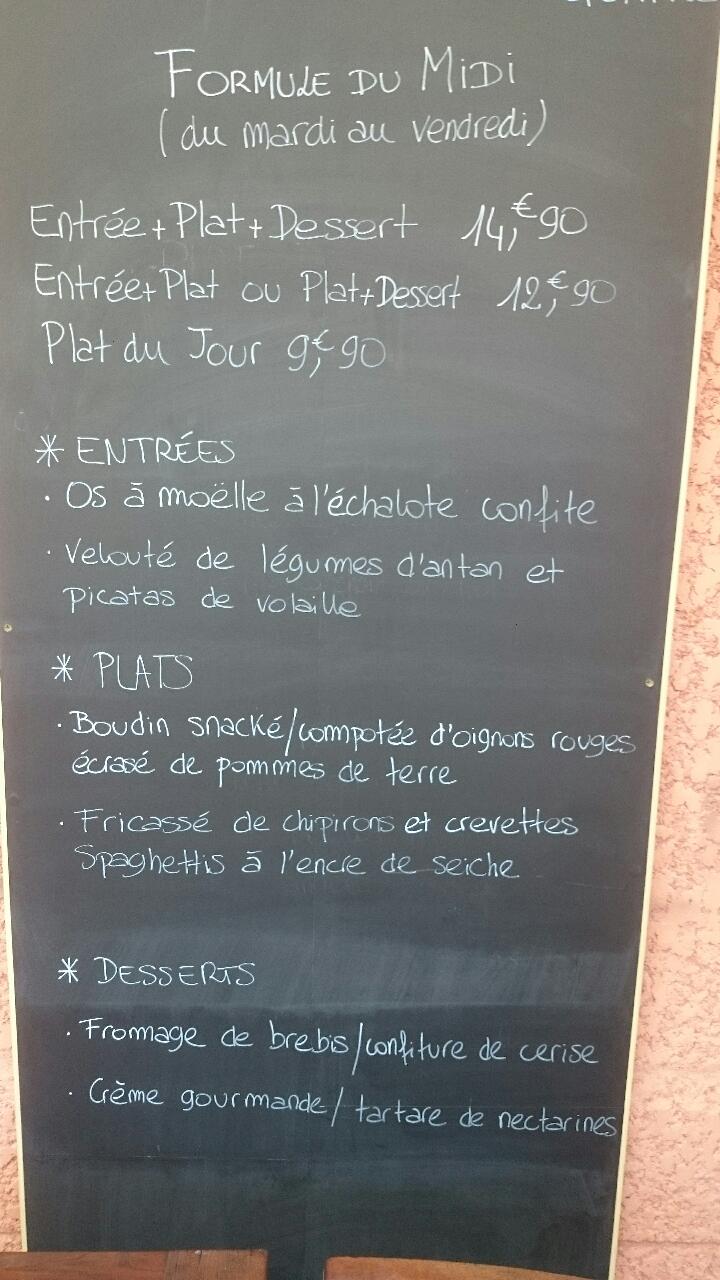 FORMULE DU MiDi
(du mardi au vendredi)
Entrée+Plat+Dessert 14,€90
Entrée+Plat ou Plat+Dessert 12,€90
Plat du Jour 9,€90
* ENTRÉES
· Os à moëlle à l'échalote confite
· Velouté de légumes d'antan et
picatas de volaille
* PLATS
· Boudin snacké/compotée d'oignons rouges
écrasé de pommes de terre
· Fricassé de chipirons et crevettes
Spaghettis à l'encre de seiche
* DESSERTS
· Fromage de brebis/confiture de cerise
· Crème gourmande/tartare de nectarines